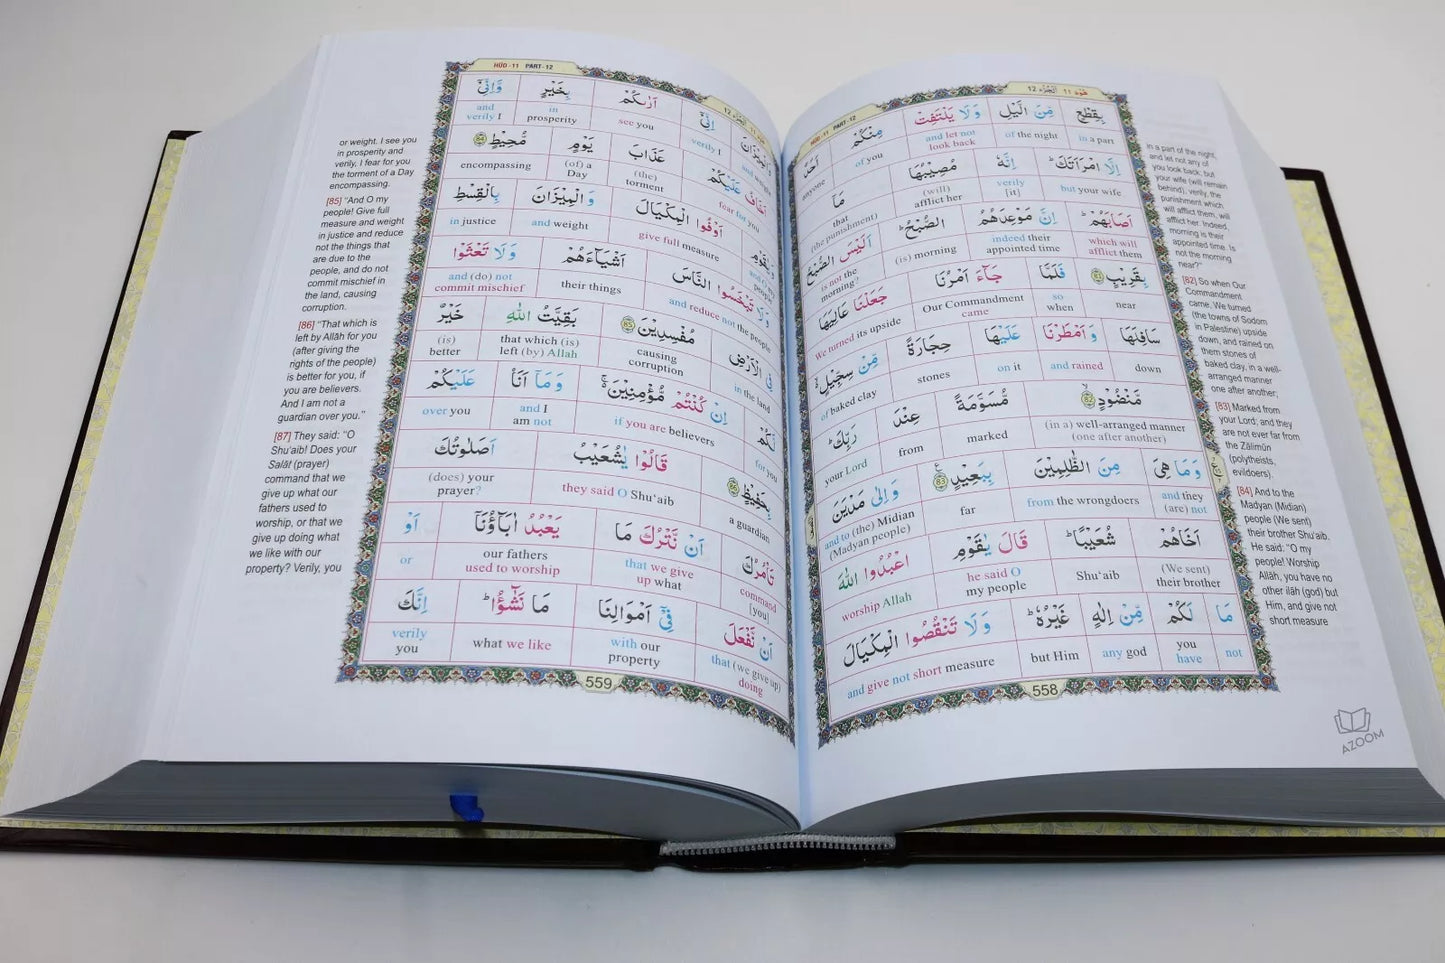 هُوْد 11 اَلْجُزْء 12
HŪD -11 PART -12
بِقِطْعٍ مِّنَ الَّيْلِ وَلَا يَلْتَفِتْ مِنْكُمْ اَحَدٌ
in a part of the night and let not look back of you anyone
اِلَّا امْرَاَتَكَ ؕ اِنَّهٗ مُصِيْبُهَا مَا
but your wife verily [it] (will) afflict her that (the punishment)
اَصَابَهُمْ ؕ اِنَّ مَوْعِدَهُمُ الصُّبْحُ ؕ اَلَيْسَ الصُّبْحُ
which will afflict them indeed their appointed time (is) morning is not the morning?
بِقَرِيْبٍ ۝81 فَلَمَّا جَآءَ اَمْرُنَا جَعَلْنَا عَالِيَهَا
near so when Our Commandment came We turned its upside
سَافِلَهَا وَ اَمْطَرْنَا عَلَيْهَا حِجَارَةً مِّنْ سِجِّيْلٍ
down and rained on it stones of baked clay
مَّنْضُوْدٍ ۝82 مُّسَوَّمَةً عِنْدَ رَبِّكَ ؕ
(in a) well-arranged manner (one after another) marked from your Lord
وَ مَا هِيَ مِنَ الظّٰلِمِيْنَ بِبَعِيْدٍ ۝83 وَ اِلٰى مَدْيَنَ
and they (are) not from the wrongdoers far and to (the) Midian (Madyan people)
اَخَاهُمْ شُعَيْبًا ؕ قَالَ يٰقَوْمِ اعْبُدُوا اللّٰهَ
(We sent) their brother Shu‘aib he said O my people worship Allah
مَا لَكُمْ مِّنْ اِلٰهٍ غَيْرُهٗ ؕ وَلَا تَنْقُصُوا الْمِكْيَالَ
not you have any god but Him and give not short measure
558
in a part of the night,
and let not any of
you look back; but
your wife (will remain
behind), verily, the
punishment which
will afflict them, will
afflict her. Indeed,
morning is their
appointed time. Is
not the morning
near?"
[82] So when Our
Commandment
came, We turned
(the towns of Sodom
in Palestine) upside
down, and rained on
them stones of
baked clay, in a well-
arranged manner
one after another;
[83] Marked from
your Lord; and they
are not ever far from
the Zâlimûn
(polytheists,
evildoers).
[84] And to the
Madyan (Midian)
people (We sent)
their brother Shu'aib.
He said: "O my
people! Worship
Allâh, you have no
other ilâh (god) but
Him, and give not
short measure
HŪD -11 PART -12
الْمِيْزَانَ اِنِّيْٓ اَرٰىكُمْ بِخَيْرٍ وَّاِنِّيْٓ
and weight verily I see you in prosperity and verily I
اَخَافُ عَلَيْكُمْ عَذَابَ يَوْمٍ مُّحِيْطٍ ۝84
fear for you (the) torment (of) a Day encompassing
وَيٰقَوْمِ اَوْفُوا الْمِكْيَالَ وَ الْمِيْزَانَ بِالْقِسْطِ
people give full measure and weight in justice
وَ لَا تَبْخَسُوا النَّاسَ اَشْيَآءَهُمْ وَ لَا تَعْثَوْا
and reduce not the people their things and (do) not commit mischief
فِي الْاَرْضِ مُفْسِدِيْنَ ۝85 بَقِيَّتُ اللّٰهِ خَيْرٌ
in the land causing corruption that which (is) left (by) Allah (is) better
لَّكُمْ اِنْ كُنْتُمْ مُّؤْمِنِيْنَ ۚ وَ مَآ اَنَا عَلَيْكُمْ
for you if you are believers and I am not over you
بِحَفِيْظٍ ۝86 قَالُوْا يٰشُعَيْبُ اَصَلٰوتُكَ
a guardian they said O Shu‘aib (does) your prayer?
تَاْمُرُكَ اَنْ نَّتْرُكَ مَا يَعْبُدُ اٰبَآؤُنَآ اَوْ
command [you] that we give up what our fathers used to worship or
اَنْ نَّفْعَلَ فِيْٓ اَمْوَالِنَا مَا نَشٰٓؤُا ؕ اِنَّكَ
that (we give up) doing with our property what we like verily you
559
or weight. I see you
in prosperity and
verily, I fear for you
the torment of a Day
encompassing.
[85] "And O my
people! Give full
measure and weight
in justice and reduce
not the things that
are due to the
people, and do not
commit mischief in
the land, causing
corruption.
[86] "That which is
left by Allâh for you
(after giving the
rights of the people)
is better for you, if
you are believers.
And I am not a
guardian over you."
[87] They said: "O
Shu'aib! Does your
Salât (prayer)
command that we
give up what our
fathers used to
worship, or that we
give up doing what
we like with our
property? Verily, you
AZOOM